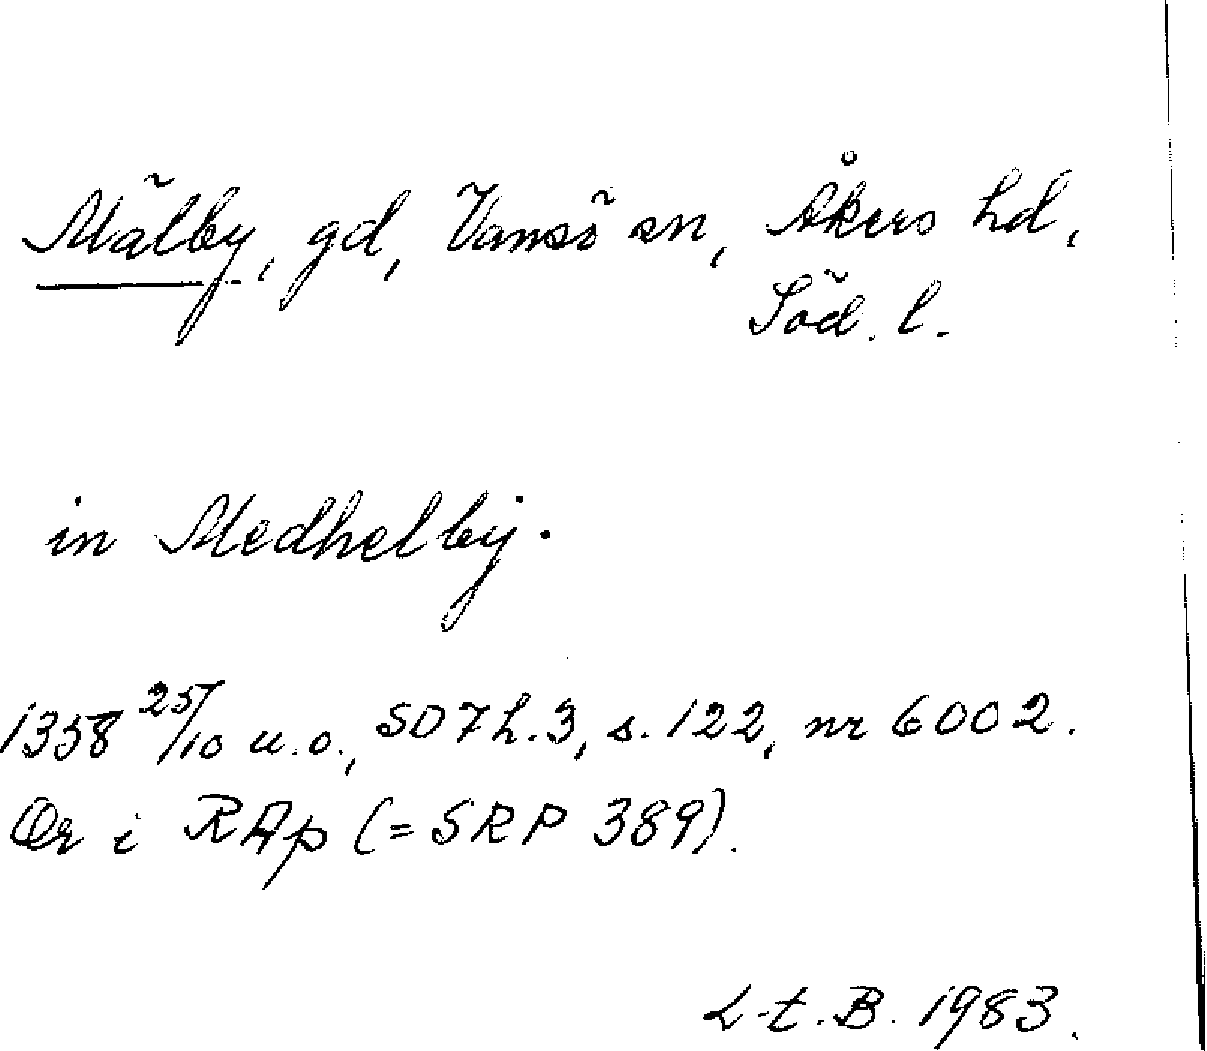 Mälby, gd, Vansö sn, Åkers hd,
Söd. l.
in Medhelby.
1358 25/10 u.o., SD 7 h. 3, s. 122, nr 6002.
Or i RAp (= SRP 389).
L-t. B. 1983.